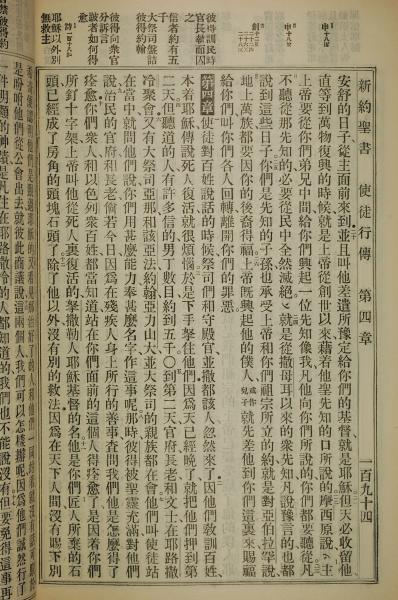 新約聖書 使徒行傳 第四章 一百九十四
安舒的日子從主面前來到並且叫他差遣所豫定給你們的基督就是耶穌但天必收留他
直等到萬物復興的時候就是上帝從創世以來藉着他聖先知的口所說的摩西原說主
上帝要從你們弟兄中間給你們興起一位先知像我凡他向你們所說的你們都要聽從凡
不聽從那先知的必要從民中全然滅絕就是從撒母耳以來的衆先知凡說豫言的也都
說到這些日子你們是先知的子孫也承受上帝和你們祖宗所立的約就是對亞伯拉罕說
地上萬族都要因你的後裔得福上帝既興起他的僕人或作兒子就先差他到你們這裏來賜福
給你們叫你們各人回轉離開你們的罪惡
第四章使徒對百姓說話的時候祭司們和守殿官並撒都該人忽然來了因他們教訓百姓
本着耶穌傳說死人復活就很煩惱於是下手拏住他們因爲天已經晚了就把他們押到第
二天但聽道的人有許多信的男丁數目約到五千〇到第二天官府長老和文士在耶路撒
冷聚會又有大祭司亞那和該亞法約翰亞力山大並大祭司的親族都在會他們叫使徒站
在當中就問他們說你們用甚麼能力奉甚麼名字作這事呢那時彼得被聖靈充滿對他們
說治民的官府和長老倘若今日因爲在殘疾人身上所行的善事查問我們他是怎麼得了
痊愈你們衆人和以色列衆百姓都當知道站在你們面前的這個人得痊愈了是因着你們
所釘十字架上帝叫他從死人裏復活的拏撒勒人耶穌基督的名他是你們匠人所棄的石
頭已經成了房角的頭塊石頭了除了他以外沒有別的救法因爲在天下人間沒有賜下別
彼得訓民時
官長拏而囚
之
信者約有五
大祭司盤詰
彼得約翰
彼得向衆官
分訴言
跛者如何得
愈
耶穌以外別
無救主
是吩咐他們從公會出去就彼此商議說這兩個人我們可以怎樣辦呢因爲他們誠然行了
一件明顯的神蹟是凡住在耶路撒冷的人都知道的我們也不能說沒有但要免得這事再